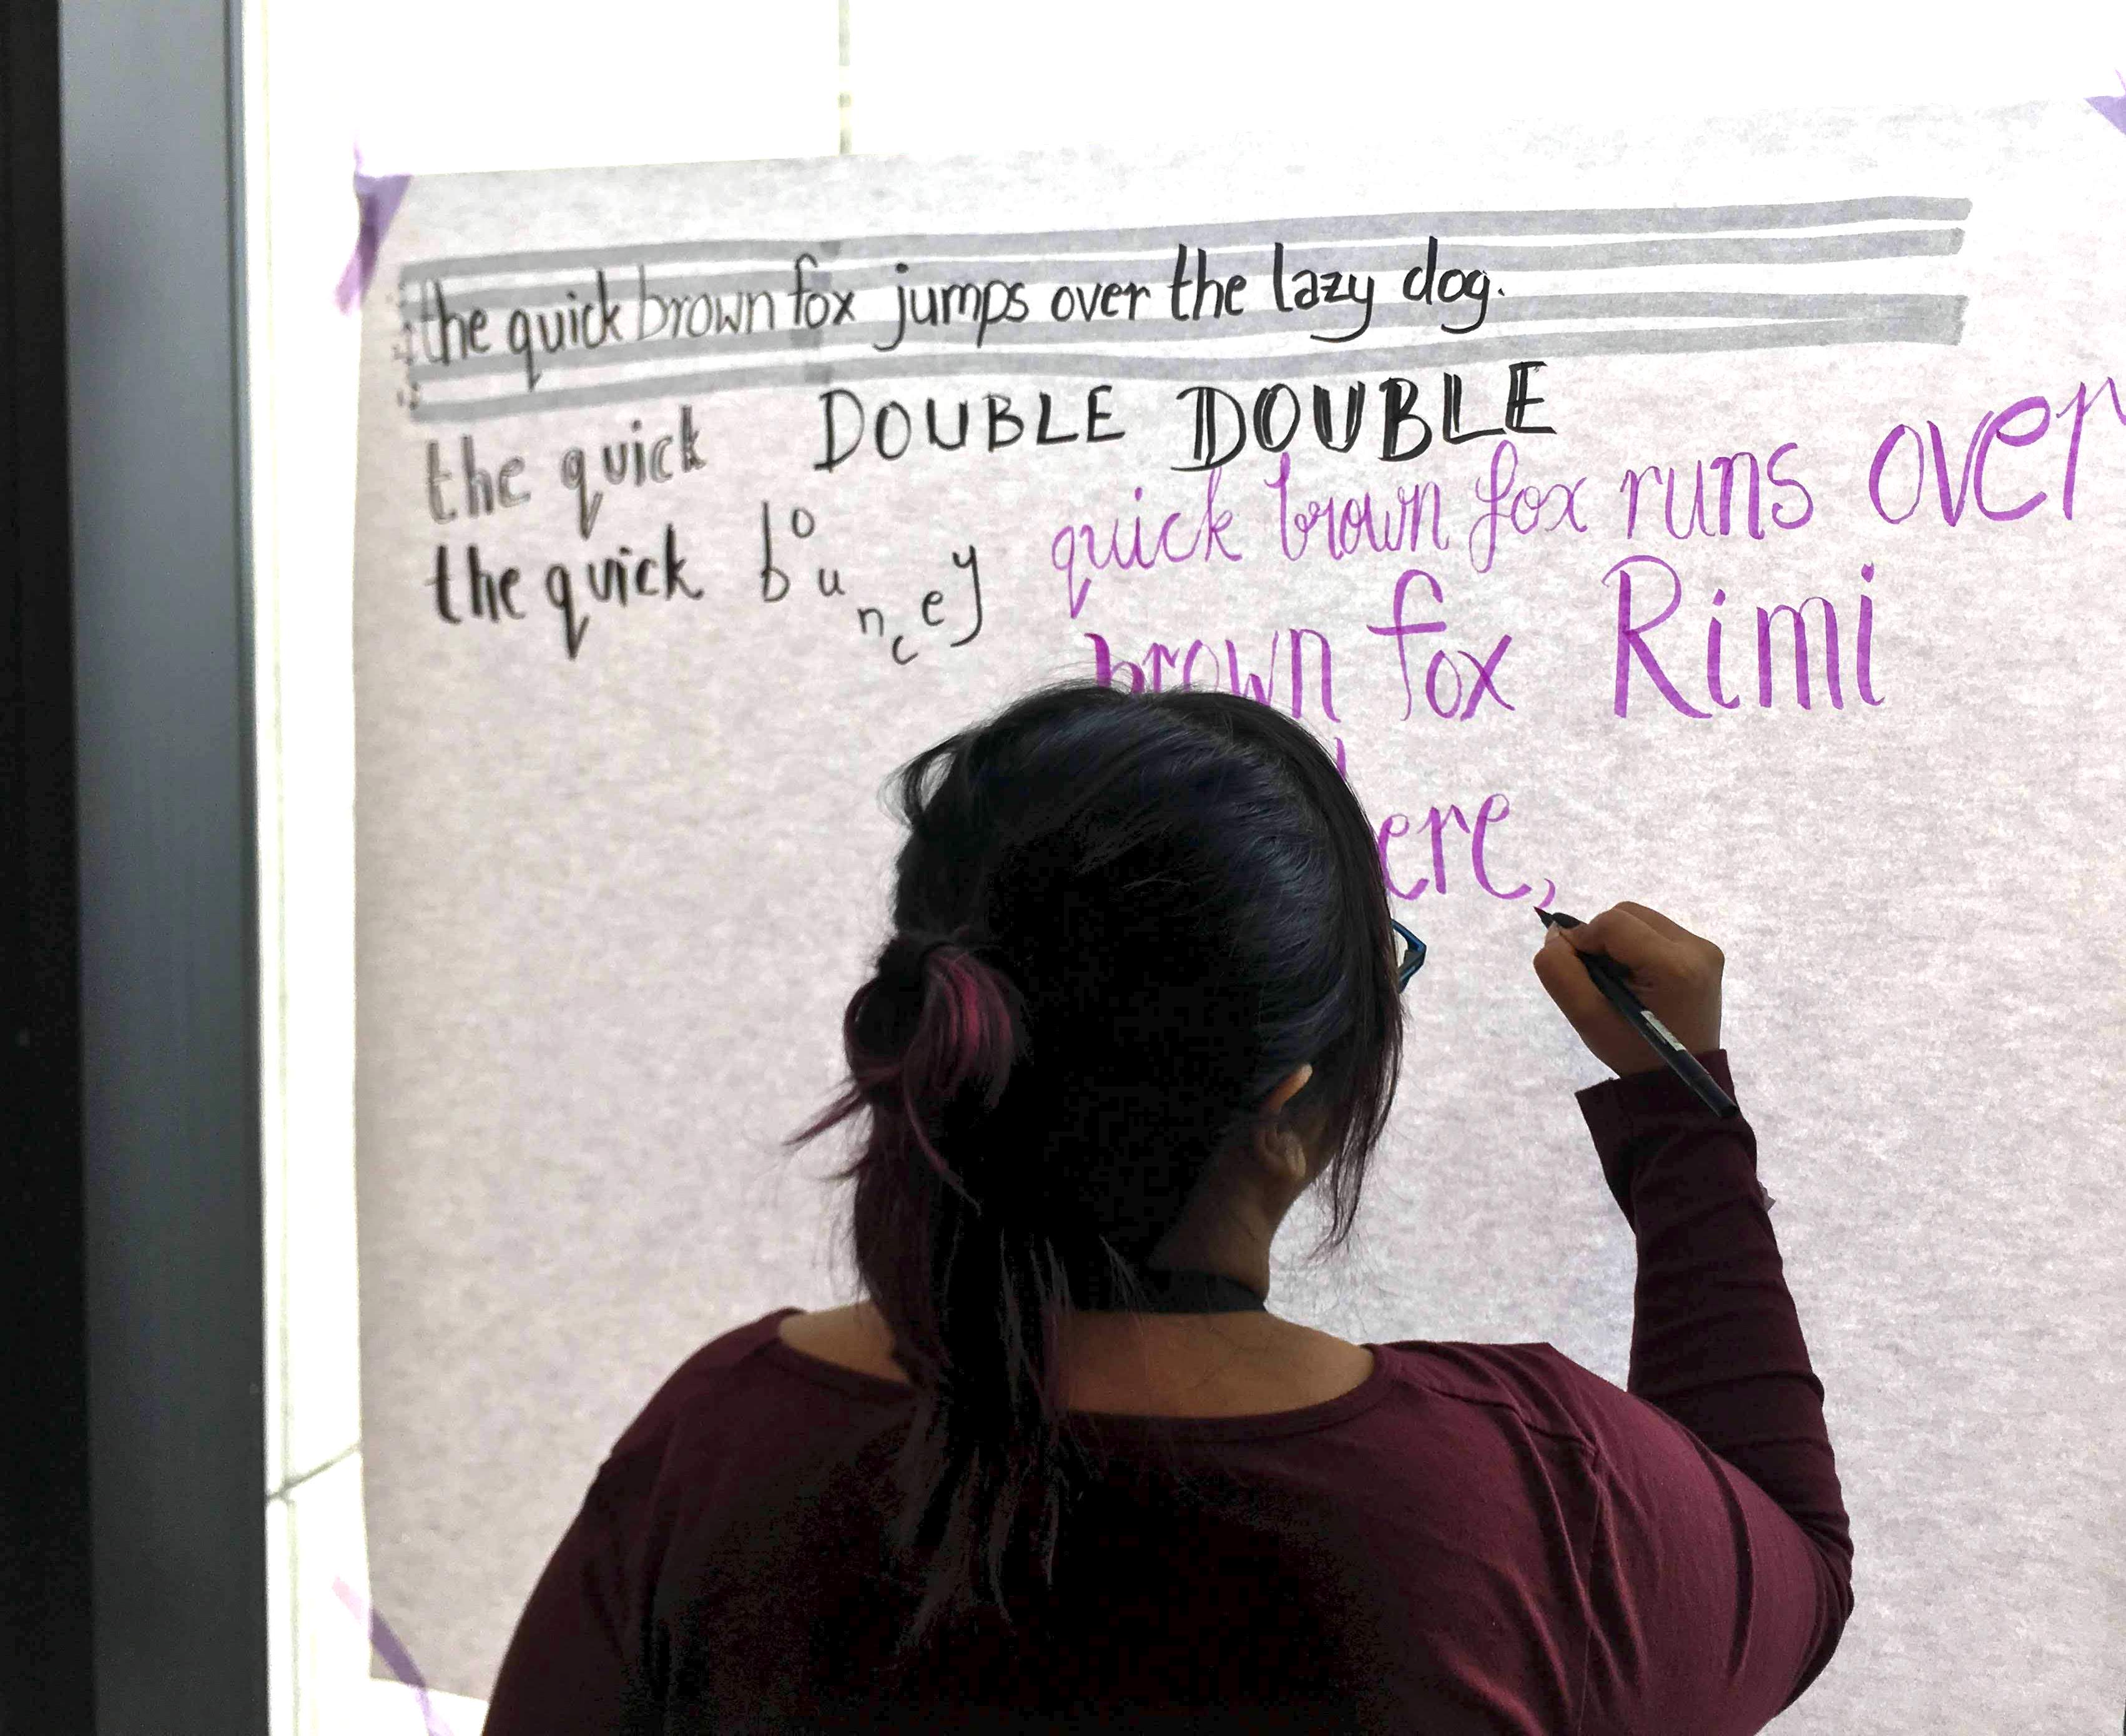 the quick brown fox jumps over the lazy dog.
the quick DOUBLE DOUBLE
the quick bouncey
quick brown fox runs over
brown fox Rimi
ere,